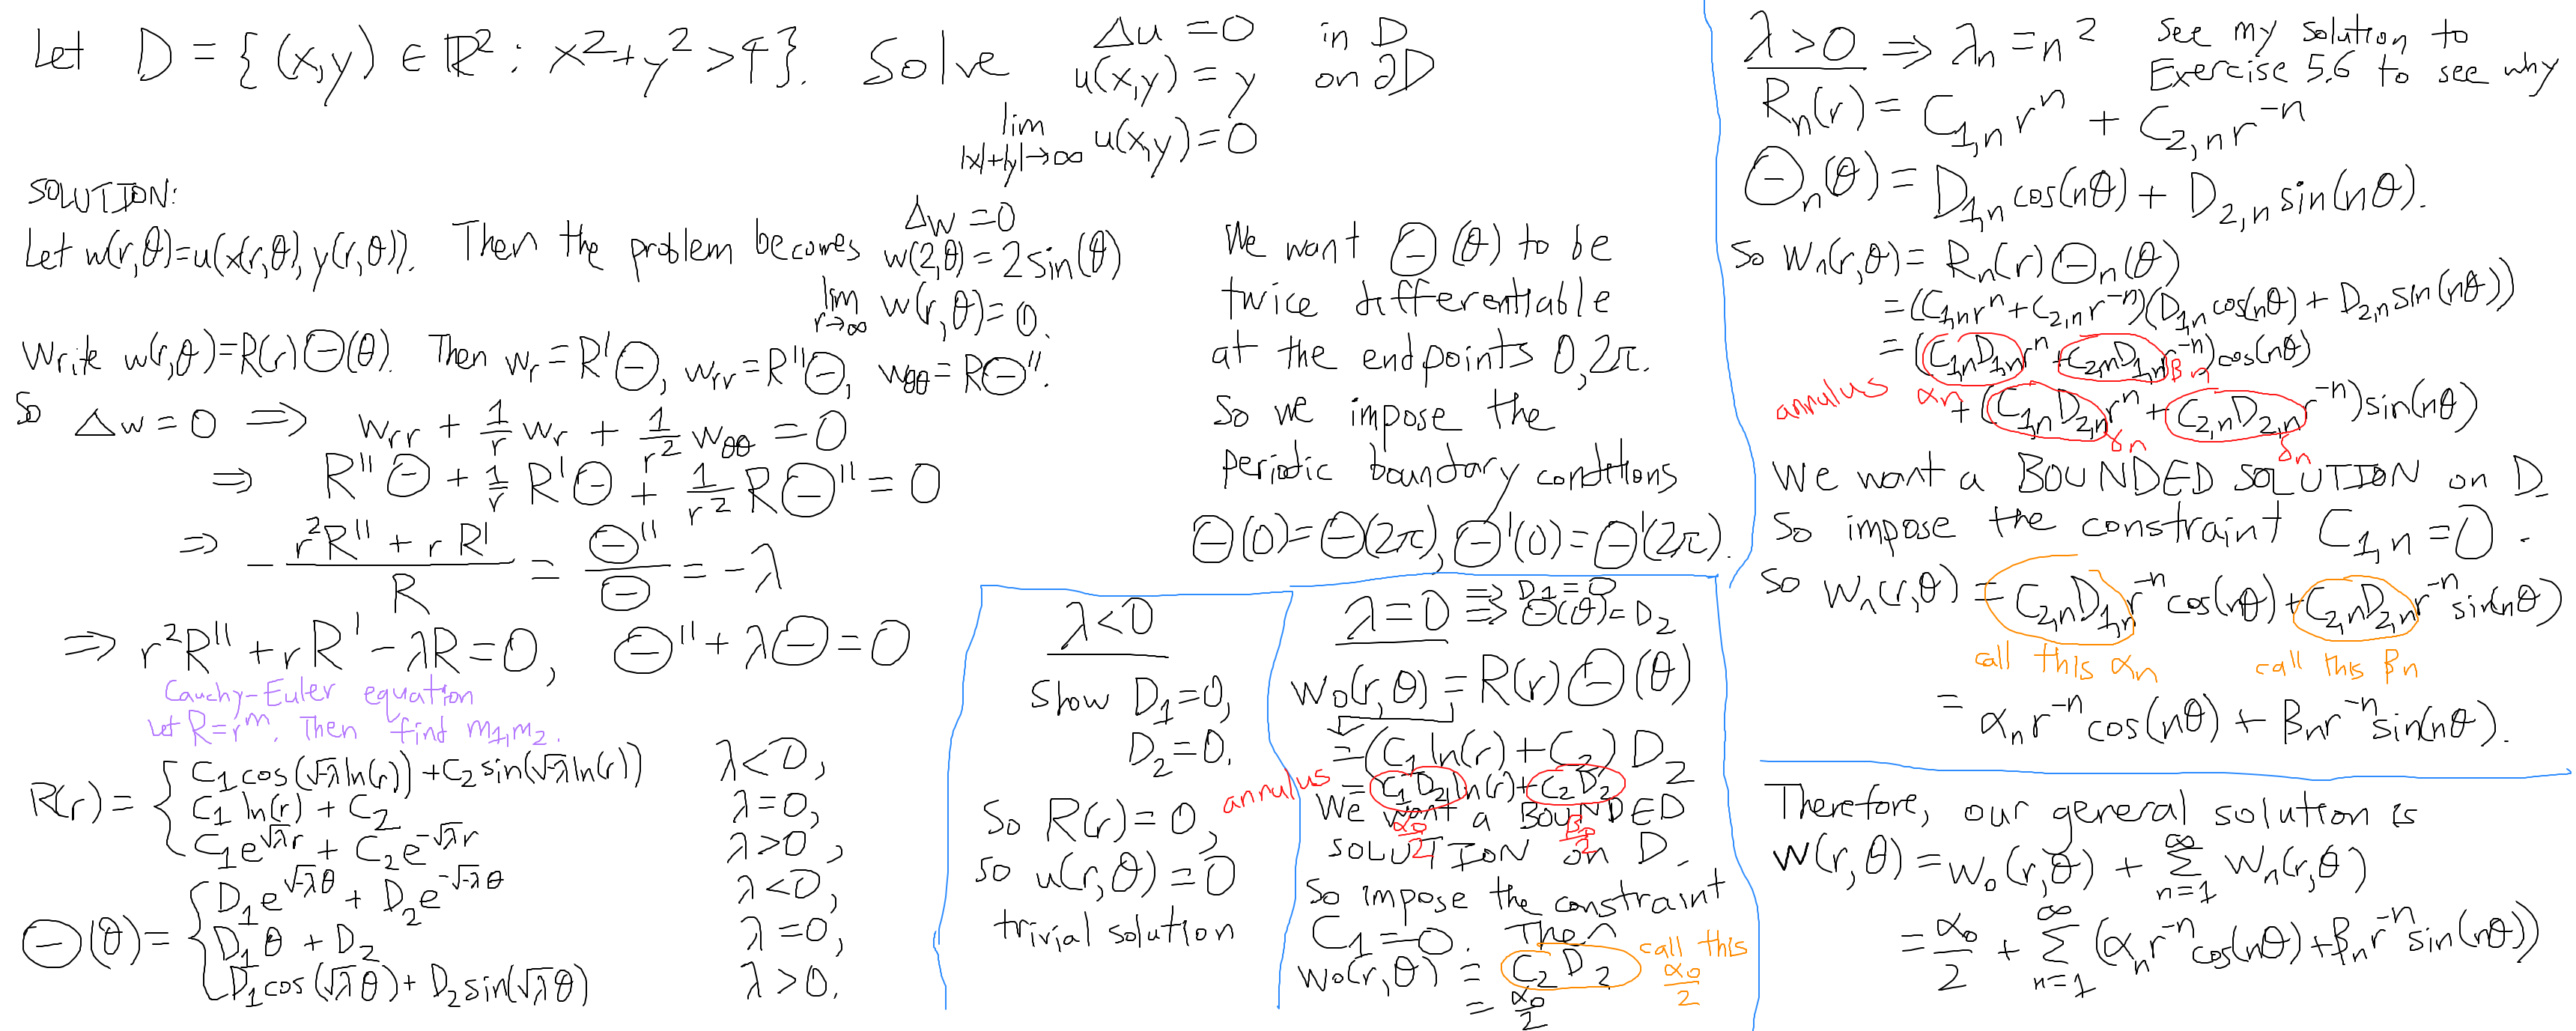 Let D = {(x,y) ∈ ℝ² : x²+y²>4}. Solve Δu = 0 in D
u(x,y) = y on ∂D
lim |x|+|y|→∞ u(x,y) = 0
SOLUTION:
Let w(r,θ)=u(x(r,θ),y(r,θ)). Then the problem becomes Δw = 0
w(2,θ) = 2 sin(θ)
lim r→∞ w(r,θ)=0.
Write w(r,θ)=R(r)Θ(θ). Then w_r = R'Θ, w_rr = R''Θ, w_θθ = RΘ''.
So Δw = 0 ⇒ w_rr + 1/r w_r + 1/r² w_θθ = 0
⇒ R''Θ + 1/r R'Θ + 1/r² RΘ'' = 0
⇒ - (r²R'' + rR')/R = Θ''/Θ = -λ
⇒ r²R'' + rR' - λR = 0, Θ'' + λΘ = 0
Cauchy-Euler equation
Let R=r^m. Then find m₁,m₂.
R(r) = { C₁cos(√-λ ln(r)) + C₂ sin(√-λ ln(r)) λ<0,
C₁ ln(r) + C₂ λ=0,
C₁e^{√λ r} + C₂e^{-√λ r} λ>0,
Θ(θ) = { D₁e^{√-λ θ} + D₂e^{-√-λ θ} λ<0,
D₁θ + D₂ λ=0,
D₁cos(√λ θ) + D₂ sin(√λ θ) λ>0.
We want Θ(θ) to be
twice differentiable
at the endpoints 0,2π.
So we impose the
periodic boundary conditions
Θ(0)=Θ(2π), Θ'(0)=Θ'(2π).
λ<0
Show D₁=0,
D₂=0.
So R(r)=0,
so u(r,θ)=0
trivial solution
λ=0 ⇒ D₁=0
⇒ Θ(θ)=D₂
w₀(r,θ) = R(r)Θ(θ)
= (C₁ ln(r) + C₂) D₂
annulus = C₁D₂ ln(r) + C₂D₂
α₀/2 β₀/2
We want a BOUNDED
SOLUTION on D.
So impose the constraint
C₁=0. Then
w₀(r,θ) = C₂D₂ call this α₀/2
= α₀/2
λ>0 ⇒ λₙ = n² See my solution to
Exercise 5.6 to see why
Rₙ(r) = C₁,ₙ rⁿ + C₂,ₙ r⁻ⁿ
Θₙ(θ) = D₁,ₙ cos(nθ) + D₂,ₙ sin(nθ).
So wₙ(r,θ) = Rₙ(r)Θₙ(θ)
= (C₁,ₙrⁿ + C₂,ₙr⁻ⁿ)(D₁,ₙ cos(nθ) + D₂,ₙ sin(nθ))
= (C₁,ₙD₁,ₙrⁿ + C₂,ₙD₁,ₙr⁻ⁿ)cos(nθ)
annulus αₙ βₙ
+ (C₁,ₙD₂,ₙrⁿ + C₂,ₙD₂,ₙr⁻ⁿ)sin(nθ)
γₙ δₙ
We want a BOUNDED SOLUTION on D.
So impose the constraint C₁,ₙ=0.
So wₙ(r,θ) = C₂,ₙD₁,ₙr⁻ⁿcos(nθ) + C₂,ₙD₂,ₙr⁻ⁿsin(nθ)
call this αₙ call this βₙ
= αₙr⁻ⁿcos(nθ) + βₙr⁻ⁿsin(nθ).
Therefore, our general solution is
w(r,θ) = w₀(r,θ) + ∑_{n=1}^∞ wₙ(r,θ)
= α₀/2 + ∑_{n=1}^∞ (αₙr⁻ⁿcos(nθ) + βₙr⁻ⁿsin(nθ))